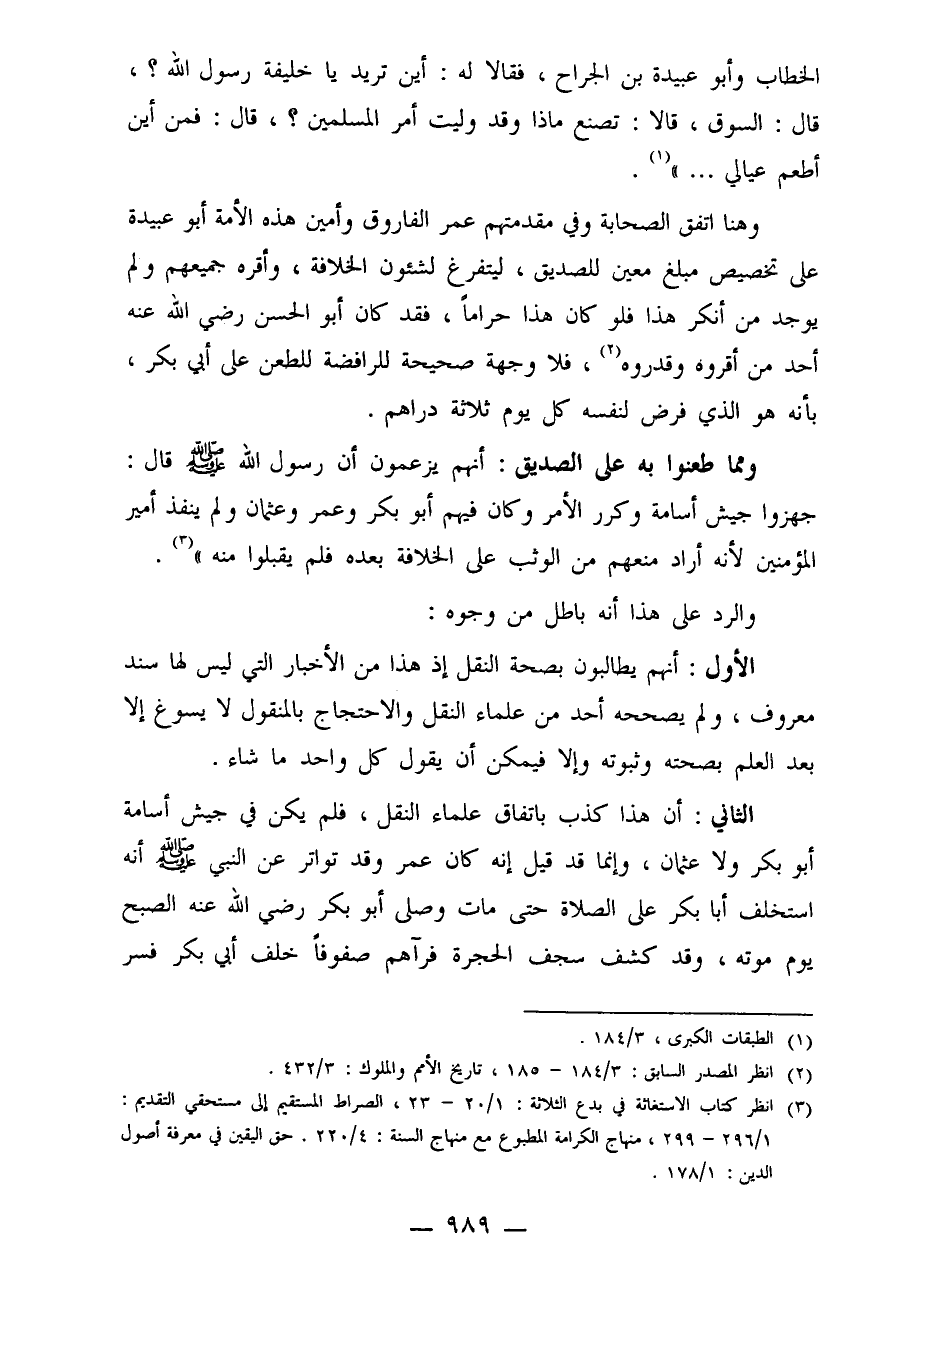 الخطاب وأبو عبيدة بن الجراح ، فقالا له : أين تريد يا خليفة رسول الله ؟ ،
قال : السوق ، قالا : تصنع ماذا وقد وليت أمر المسلمين ؟ ، قال : فمن أين
أطعم عيالي ... »(١) .
وهنا اتفق الصحابة وفي مقدمتهم عمر الفاروق وأمين هذه الأمة أبو عبيدة
على تخصيص مبلغ معين للصديق ، ليتفرغ لشئون الخلافة ، وأقره جميعهم ولم
يوجد من أنكر هذا فلو كان هذا حراماً ، فقد كان أبو الحسن رضي الله عنه
أحد من أقروه وقدروه(٢) ، فلا وجهة صحيحة للرافضة للطعن على أبي بكر ،
بأنه هو الذي فرض لنفسه كل يوم ثلاثة دراهم .
ومما طعنوا به على الصديق : أنهم يزعمون أن رسول الله ﷺ قال :
جهزوا جيش أسامة وكرر الأمر وكان فيهم أبو بكر وعمر وعثمان ولم ينفذ أمير
المؤمنين لأنه أراد منعهم من الوثب على الخلافة بعده فلم يقبلوا منه »(٣) .
والرد على هذا أنه باطل من وجوه :
الأول : أنهم يطالبون بصحة النقل إذ هذا من الأخبار التي ليس لها سند
معروف ، ولم يصححه أحد من علماء النقل والاحتجاج بالمنقول لا يسوغ إلا
بعد العلم بصحته وثبوته وإلا فيمكن أن يقول كل واحد ما شاء .
الثاني : أن هذا كذب باتفاق علماء النقل ، فلم يكن في جيش أسامة
أبو بكر ولا عثمان ، وإنما قد قيل إنه كان عمر وقد تواتر عن النبي ﷺ أنه
استخلف أبا بكر على الصلاة حتى مات وصلى أبو بكر رضي الله عنه الصبح
يوم موته ، وقد كشف سجف الحجرة فرآهم صفوفاً خلف أبي بكر فسر
(١) الطبقات الكبرى ، ١٨٤/٣ .
(٢) انظر المصدر السابق : ١٨٤/٣ – ١٨٥ ، تاريخ الأمم والملوك : ٤٣٢/٣ .
(٣) انظر كتاب الاستغاثة في بدع الثلاثة : ٢٠/١ – ٢٣ ، الصراط المستقيم إلى مستحقي التقديم :
٢٩٦/١ – ٢٩٩ ، منهاج الكرامة المطبوع مع منهاج السنة : ٢٢٠/٤ . حق اليقين في معرفة أصول
الدين : ١٧٨/١ .
— ٩٨٩ —